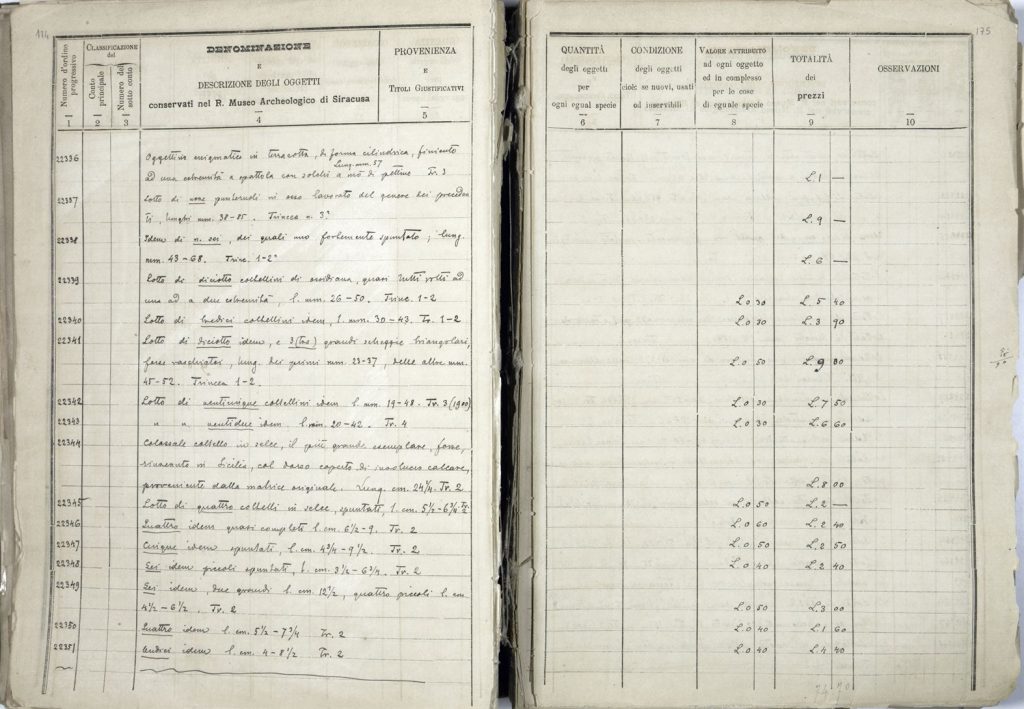 174
Numero d'ordine progressivo
CLASSIFICAZIONE del
Conto principale
Numero del sotto conto
DENOMINAZIONE
E
DESCRIZIONE DEGLI OGGETTI
conservati nel R. Museo Archeologico di Siracusa
PROVENIENZA
E
TITOLI GIUSTIFICATIVI
1 2 3 4 5
22336 Oggettino enigmatico in terracotta, di forma cilindrica, finiente
Lung. mm. 57
ad una estremità a spattola con solchi a mò di pettine Tr. 3
22337 Lotto di nove punteruoli in osso lavorato del genere dei preceden
ti, lunghi mm. 38-85. Trincea n. 3ª
22338 Idem di n. sei, dei quali uno fortemente spuntato; lung.
mm. 43-68. Trinc. 1-2ª
22339 Lotto di diciotto coltellini di ossidiana, quasi tutti rotti ad
una od a due estremità, l. mm. 26-50. Trinc. 1-2
22340 Lotto di tredici coltellini idem, l. mm. 30-43. Tr. 1-2
22341 Lotto di diciotto idem, e 3 (tre) grandi scheggie triangolari,
forse raschiatoi, lung. dei primi mm. 23-37, delle altre mm.
45-52. Trincea 1-2.
22342 Lotto di venticinque coltellini idem l. mm. 19-48. Tr. 3 (1900)
22343 " " ventidue idem l. mm. 20-42. Tr. 4
22344 Colossale coltello in selce, il più grande esemplare, forse,
rinvenuto in Sicilia, col dorso coperto di involucro calcare,
proveniente dalla matrice originale. Lung. cm. 24 3/4. Tr. 2
22345 Lotto di quattro coltelli in selce, spuntati, l. cm. 5 1/2-6 3/4 Tr. 2
22346 Quattro idem quasi completi l. cm. 6 1/2-9. Tr. 2
22347 Cinque idem spuntati, l. cm. 4 3/4-9 1/2. Tr. 2
22348 Sei idem piccoli spuntati, l. cm. 3 1/2-6 3/4. Tr. 2
22349 Sei idem, due grandi l. cm. 12 1/2, quattro piccoli l. cm
4 1/2-6 1/2. Tr. 2
22350 Quattro idem l. cm. 5 1/2-7 3/4 Tr. 2
22351 Undici idem l. cm. 4-8 1/2 Tr. 2
175
QUANTITÀ
degli oggetti
per
ogni egual specie
CONDIZIONE
degli oggetti
cioè: se nuovi, usati
od inservibili
VALORE ATTRIBUITO
ad ogni oggetto
ed in complesso
per le cose
di eguale specie
TOTALITÀ
dei
prezzi
OSSERVAZIONI
6 7 8 9 10
L. 1 —
L. 9 —
L. 6 —
L. 0 30 L. 5 40
L. 0 30 L. 3 90
L. 0 50 L. 9 80
L. 0 30 L. 7 50
L. 0 30 L. 6 60
L. 8 00
L. 0 50 L. 2 —
L. 0 60 L. 2 40
L. 0 50 L. 2 50
L. 0 40 L. 2 40
L. 0 50 L. 3 00
L. 0 40 L. 1 60
L. 0 40 L. 4 40